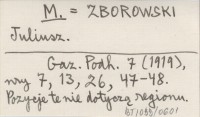 M. = ZBOROWSKI
Juliusz.
Gaz. Podh. 7 (1919),
nry 7, 13, 26, 47-48.
Pozycje te nie dotyczą regionu.